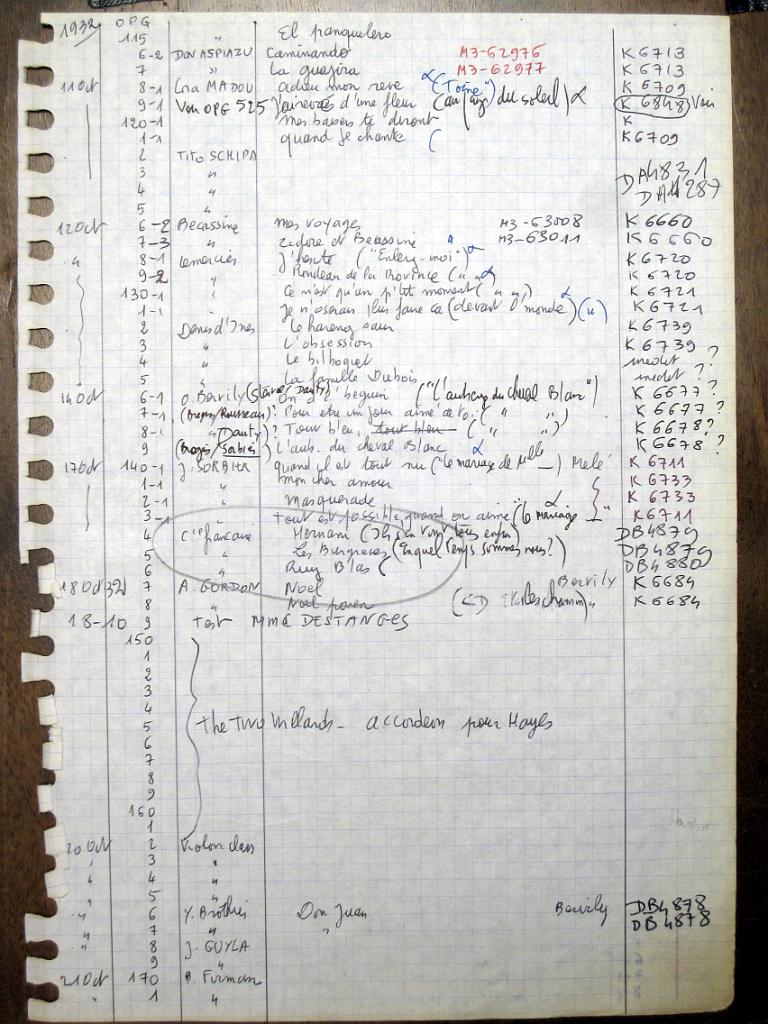 1932 OPG
115 " El panquelero
6-2 DON ASPIAZU Caminando M3-62976 K 6713
7 " La guajira M3-62977 K 6713
11 Oct 8-1 Lina MADOU adieu mon reve ("Toine") K 6709
9-1 Voir OPG 525 d'une fleur (au pays du soleil) α K 6848 Voir
120-1 mes baisers te diront K
1-1 quand je chante ( K 6709
2 Tito SCHIPA
3 " DA4831
4 " DA4287
5 "
12 Oct 6-2 Becassine mes voyages M3-63008 K 6660
7-3 " et Becassine " M3-63011 K 6660
" 8-1 Lemercier J'hesite ("Enlevez-moi") α K 6720
9-2 " Rondeau de la Province (" ") α K 6720
130-1 " Ce n'est qu'un p'tit moment (" ") α K 6721
1-1 . Je n'oserai plus faire ca (devant l'monde) (") K 6721
2 Denis d'Ines Le hareng saur K 6739
3 " L'obsession K 6739
4 " Le bilboquet inedit ?
5 " La famille Dubois inedit ?
14 Oct 6-1 O. Bervily ( Dauty) On a l'beguin ("L'auberge du cheval Blanc") K 6677 ?
7-1 ( /Rousseau)? Pour etre un jour aimé de (" ") K 6677 ?
8-1 " Dauty)? Tout bleu, tout bleu (" ") K 6678?
9 ( /Sorbier) L'aub. du cheval Blanc α K 6678 ?
17 Oct 140-1 J. SORBIER quand il est tout nu (le mariage de Melle ) Melé K 6711
1-1 " mon cher amour K 6733
2-1 " masquerade K 6733
3-1 " tout est possible, quand on aime (le mariage ) α K 6711
4 Cie francaise Hernani (Ils s'en vont tous enfin) DB4879
5 " Les Burgraves (En quel temps sommes nous?) DB4879
6 " Ruy Blas ( DB4880
18 Oct 32 7 A. GORDON Noel Bervily K 6684
8 " Noel paien ( ) " K 6684
18-10 9 Test MME DESTANGES
150
1
2
3
4
5 The Two Villards - accordeon pour Hayes
6
7
8
9
160
1
20 Oct 2 Violon class
" 3 "
" 4 "
" 5 "
" 6 Y. Brothier Don Juan Bervily DB4878
" 7 " " DB4878
" 8 J. GUYLA
9 "
21 Oct 170 Firman
" 1 "